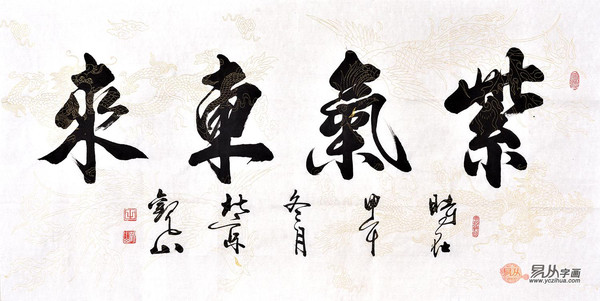 紫氣東來
時在
甲午
冬月
易从字画
www.yczihua.com